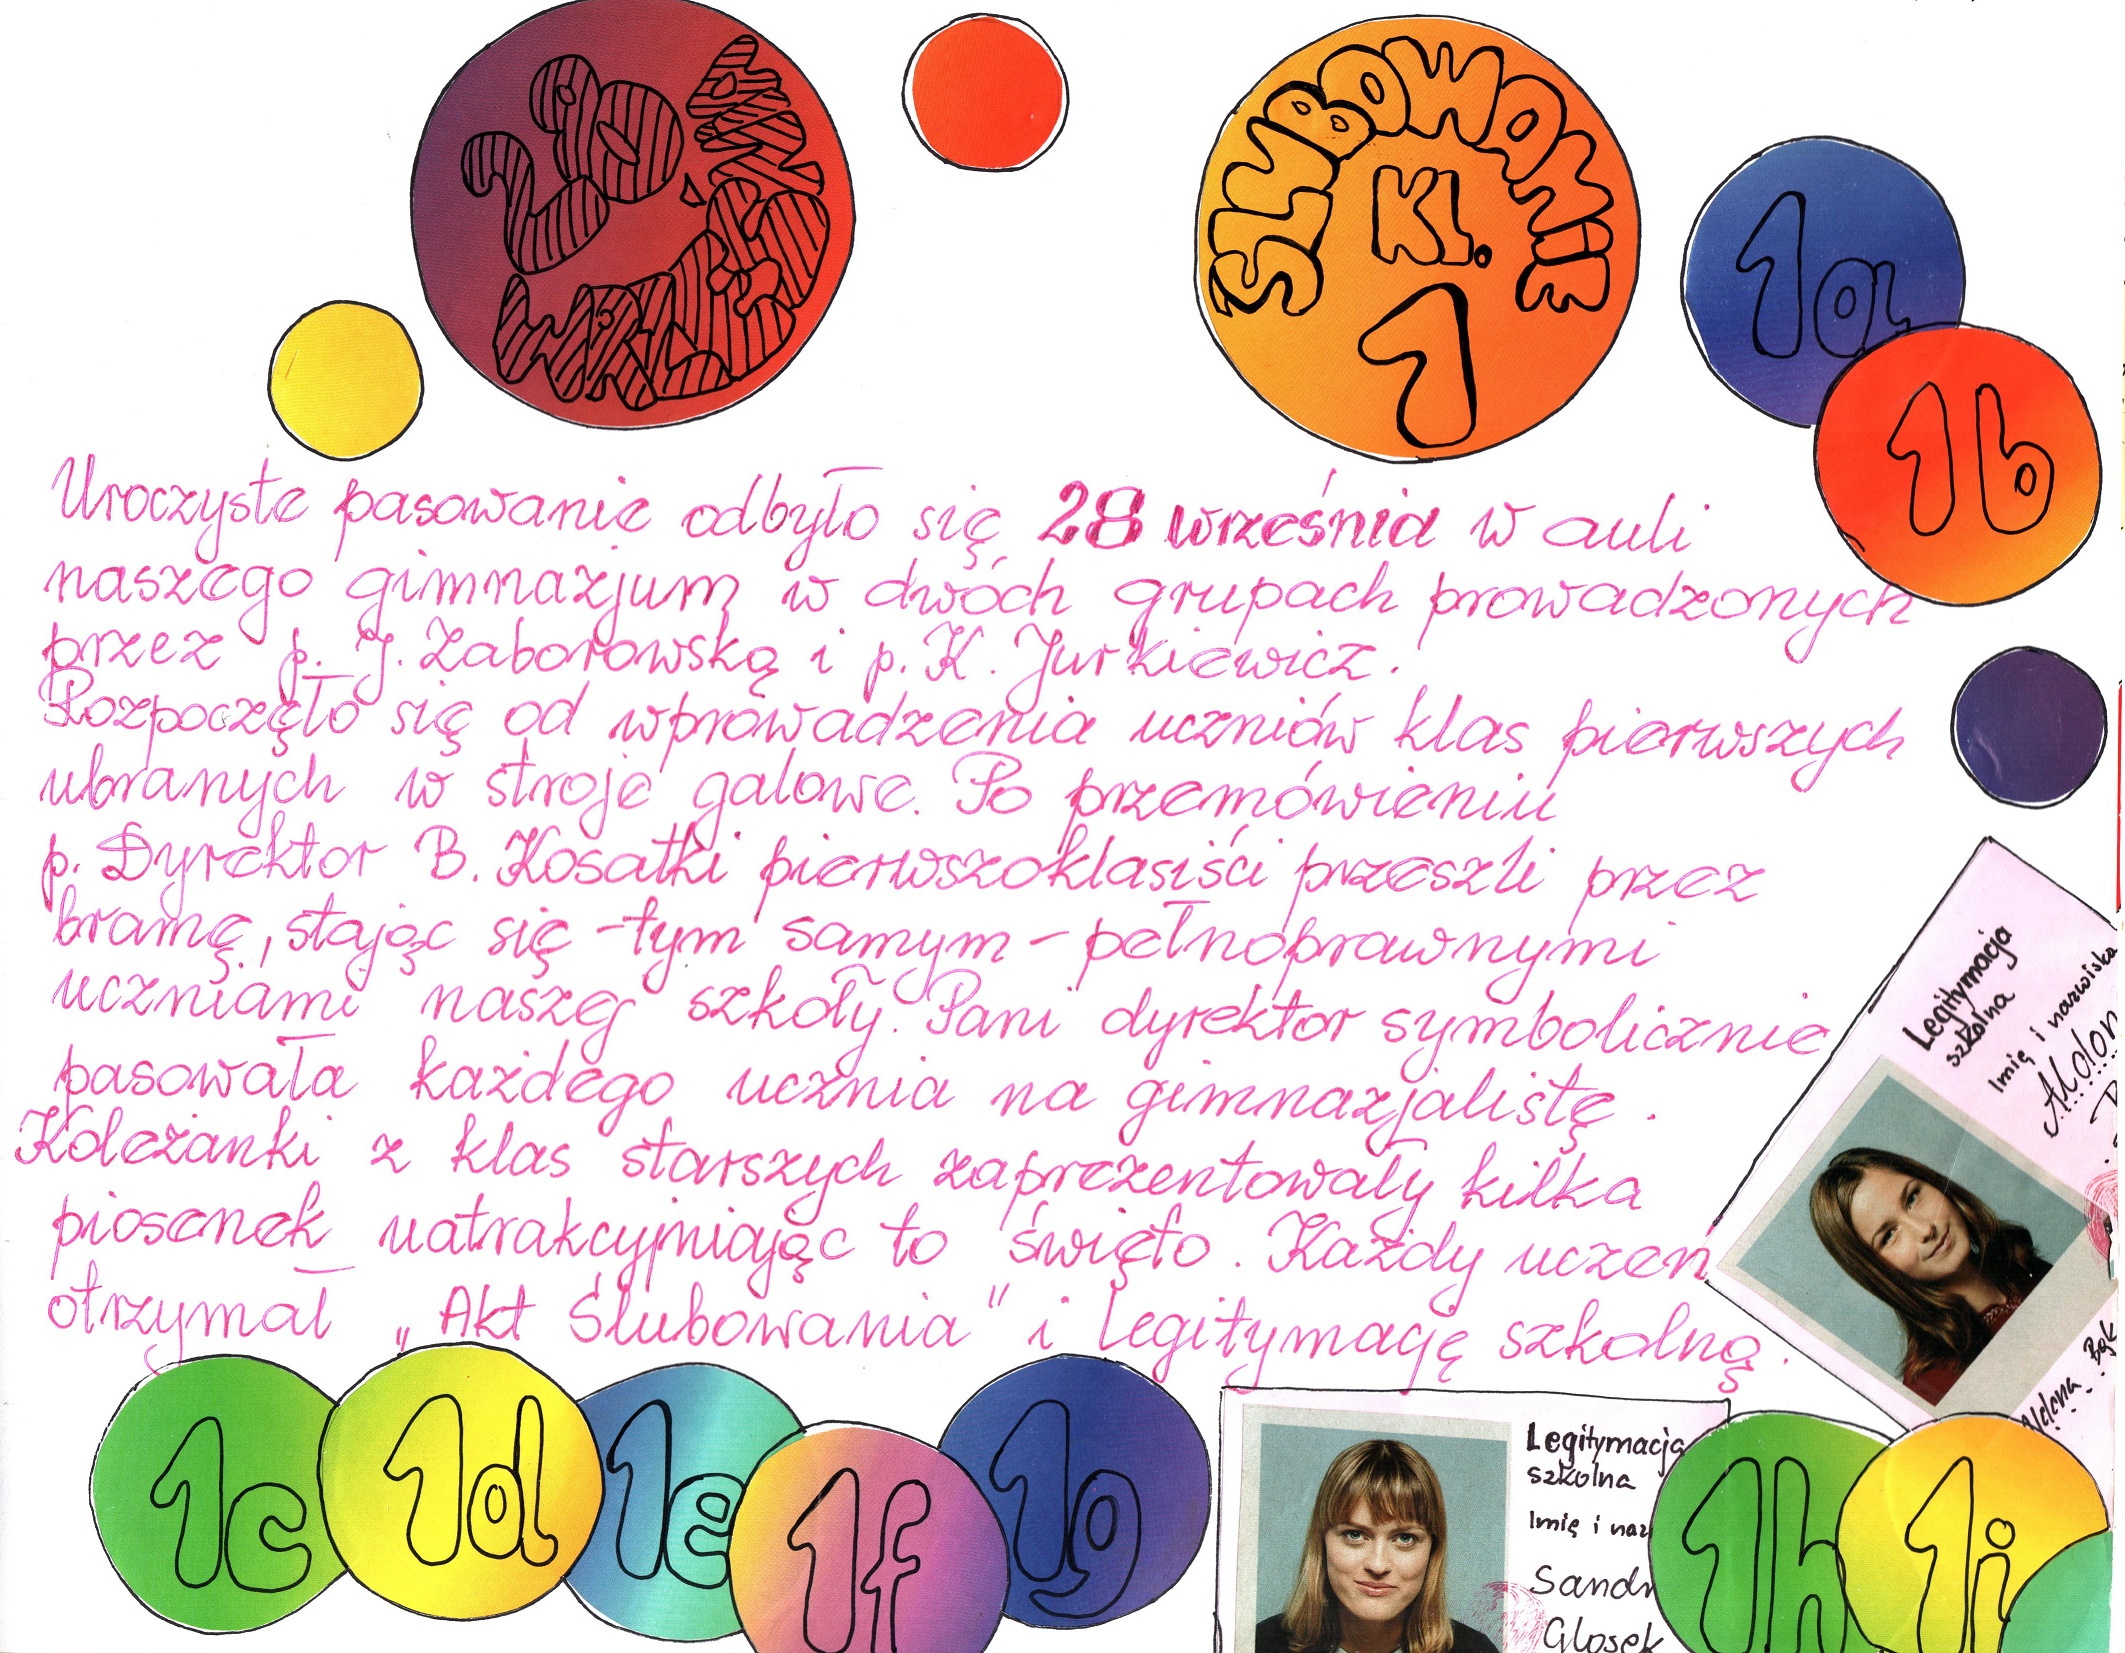 28 WRZEŚNIA
ŚLUBOWANIE
KL.
1
1a
1b
Uroczyste pasowanie odbyło się 28 września w auli
naszego gimnazjum w dwóch grupach prowadzonych
przez p. J. Zaborowską i p. K. Jurkiewicz.
Rozpoczęło się od wprowadzenia uczniów klas pierwszych
ubranych w stroje galowe. Po przemówieniu
p. Dyrektor B. Kosatki pierwszoklasiści przeszli przez
bramę, stając się - tym samym - pełnoprawnymi
uczniami naszej szkoły. Pani dyrektor symbolicznie
pasowała każdego ucznia na gimnazjalistę.
Koleżanki z klas starszych zaprezentowały kilka
piosenek uatrakcyjniając to święto. Każdy uczeń
otrzymał „Akt Ślubowania" i legitymację szkolną.
Legitymacja
szkolna
Imię i nazwisko
Bąk
1c
1d
1e
1f
1g
Legitymacja
szkolna
Imię i naz
Sandr
Glosek
1h
1i